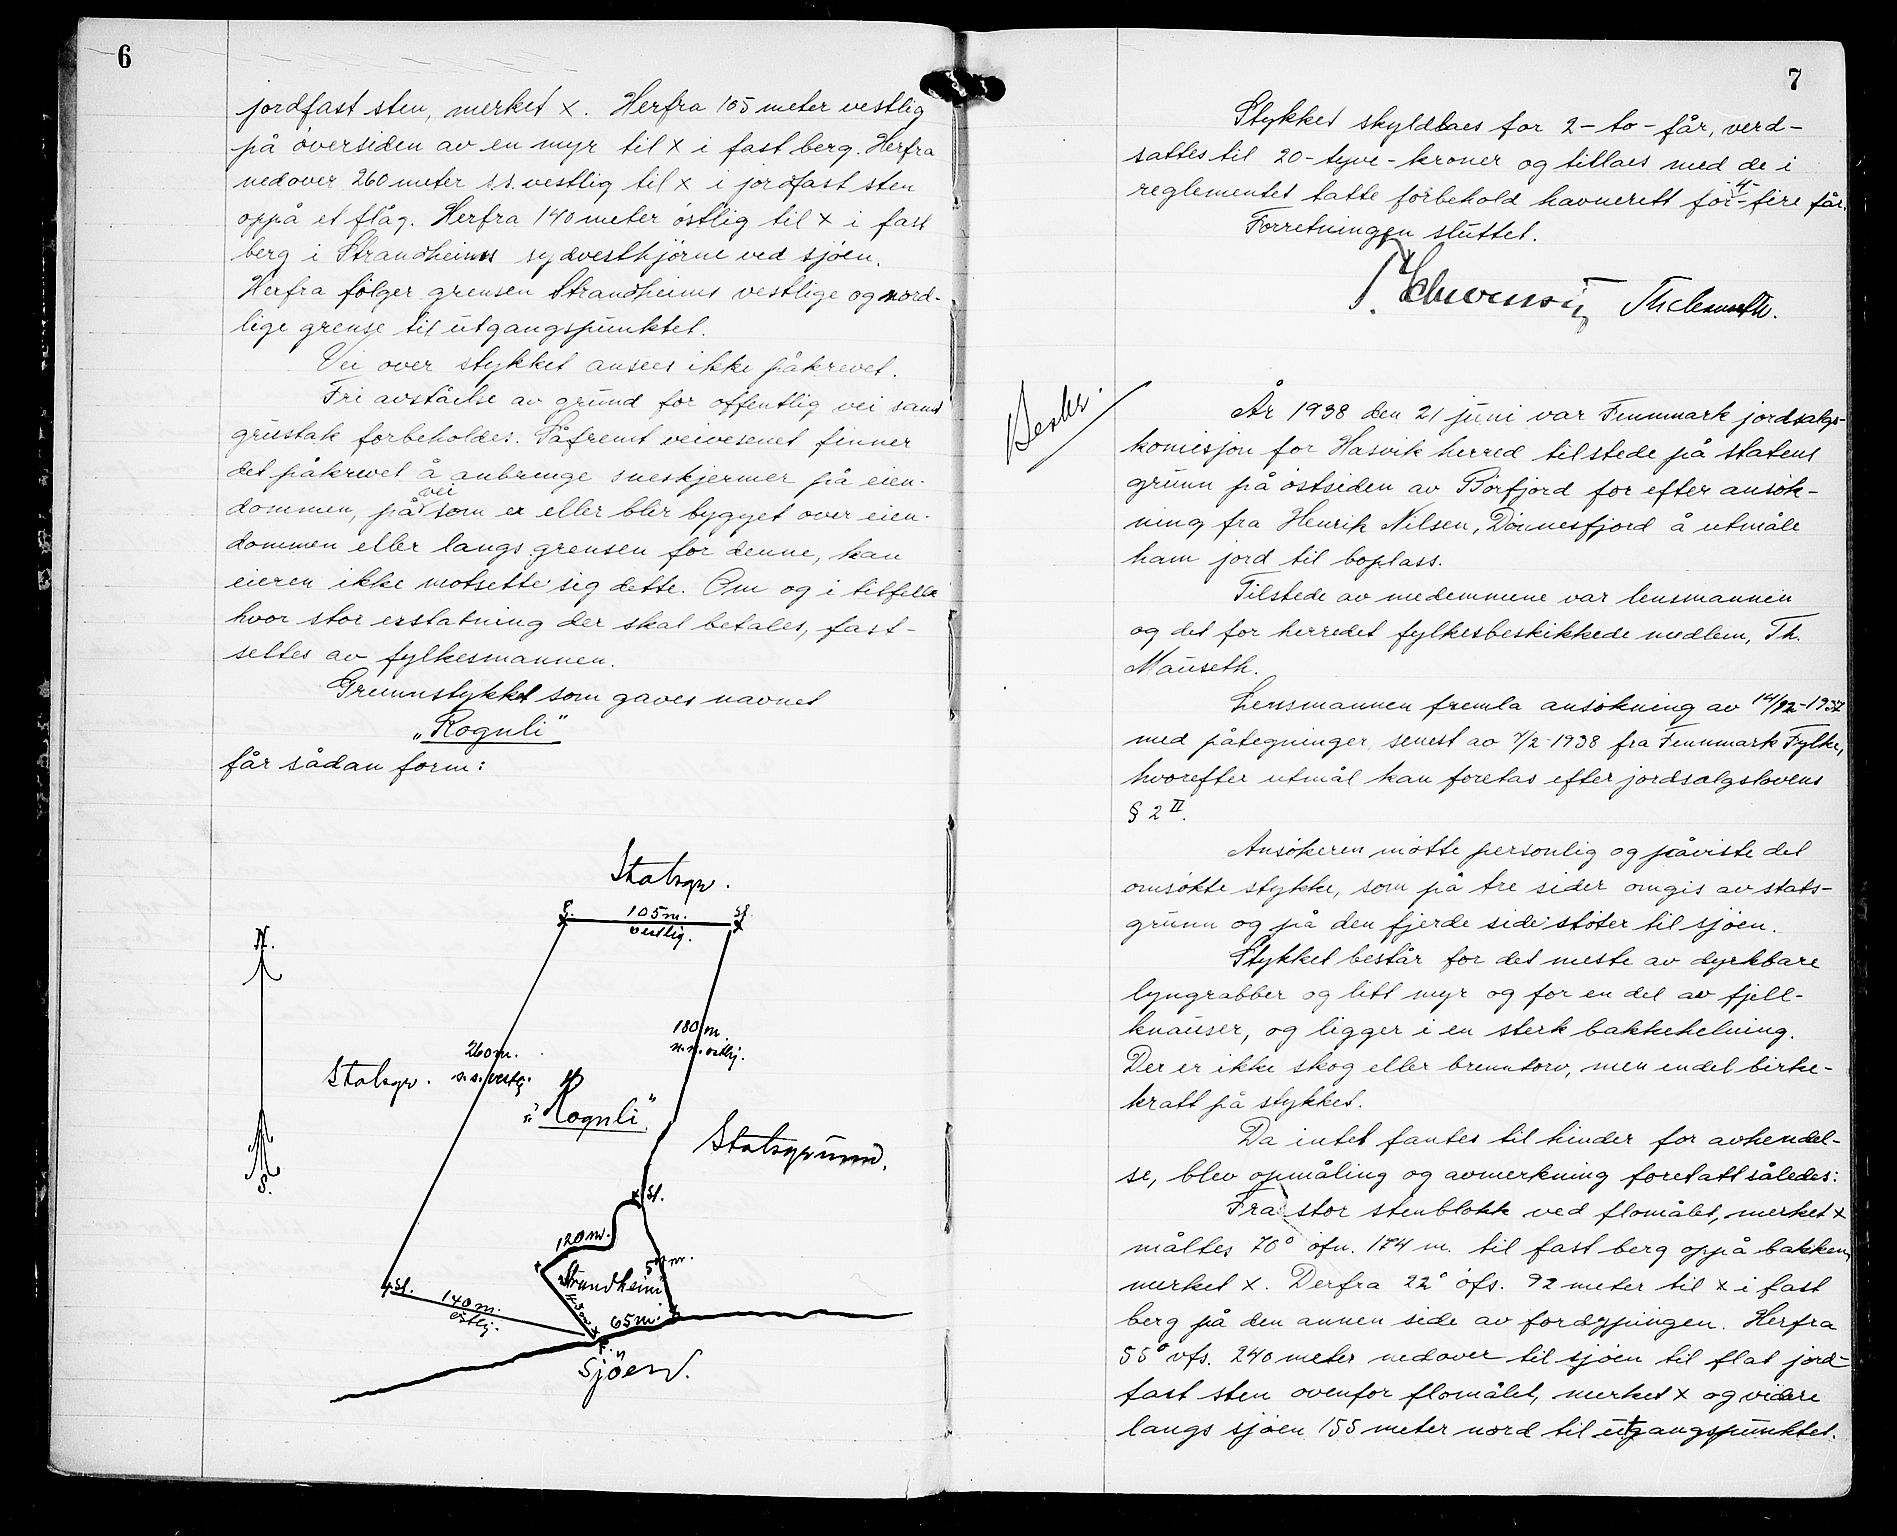 6
jordfast sten, merket x. Herfra 105 meter vestlig
på oversiden av en myr til x i fast berg. Herfra
nedover 260 meter s.s.vestlig til x i jordfast sten
oppå et flåg. Herfra 140 meter östlig til x i fast
berg i Strandheims sydvesthjörne ved sjöen.
Herfra fölger grensen Strandheims vestlige og nord-
lige grense til utgangspunktet.
Vei over stykket ansees ikke påkrevet.
Fri avståelse av grund for offentlig vei samt
grustak forbeholdes. Såfremt veivesenet finner
det påkrevet å anbringe sneskjermer på eien-
vei
dommen, på som er eller blir bygget over eien-
dommen eller langs grensen for denne, kan
eieren ikke motsette sig dette. Om og i tilfelle
hvor stor erstatning der skal betales, fast-
settes av fylkesmannen.
Grunnstykket som gaves navnet
„Rognli"
får sådan form:
Statsgr.
F. 105 m. St.
vestlig.
N.
180 m.
n.n.östlig.
260 m.
s.s.vestlig.
Statsgr.
„Rognli"
Statsgrunn.
S.
St.
120 m.
Strandheim
65 m.
St.
140 m.
östlig.
F.
Sjöen.
7
Stykket skyldtaes for 2-to-får, verd-
sattes til 20-tyve-kroner og tillaes med de i
4-
reglementet tatte forbehold havnerett for -fire får.
Forretningen sluttet.
Th Mauseth.
År 1938 den 21 juni var Finnmark jordsalgs-
komisjon for Hasvik herred tilstede på statens
grunn på östsiden av Börfjord for efter ansök-
ning fra Henrik Nilsen, Dönnesfjord å utmåle
ham jord til boplass.
Tilstede av medemmene var lensmannen
og det for herredet fylkesbeskikkede medlem, Th.
Mauseth.
Lensmannen fremla ansökning av 14/12-1937
med påtegninger, senest av 7/2-1938 fra Finnmark Fylke,
hvorefter utmål kan foretas efter jordsalgslovens
§ 2 II.
Ansökeren mötte personlig og påviste det
omsökte stykke, som på tre sider omgis av stats-
grunn og på den fjerde side stöter til sjöen.
Stykket består for det meste av dyrkbare
lyngrabber og litt myr og for en del av fjell-
knauser, og ligger i en sterk bakkehelning.
Der er ikke skog eller brenntorv, men endel birke-
kratt på stykket.
Da intet fantes til hinder for avhendel-
se, blev opmåling og avmerkning foretatt således:
Fra stor stenblokk ved flomålet, merket x
måltes 70° öfn. 174 m. til fast berg oppå bakken,
merket x. Derfra 22° öfs. 92 meter til x i fast
berg på den annen side av fordypningen. Herfra
55° vfs. 240 meter nedover til sjöen til flat jord-
fast sten ovenfor flomålet, merket x og videre
langs sjöen 155 meter nord til utgangspunktet.